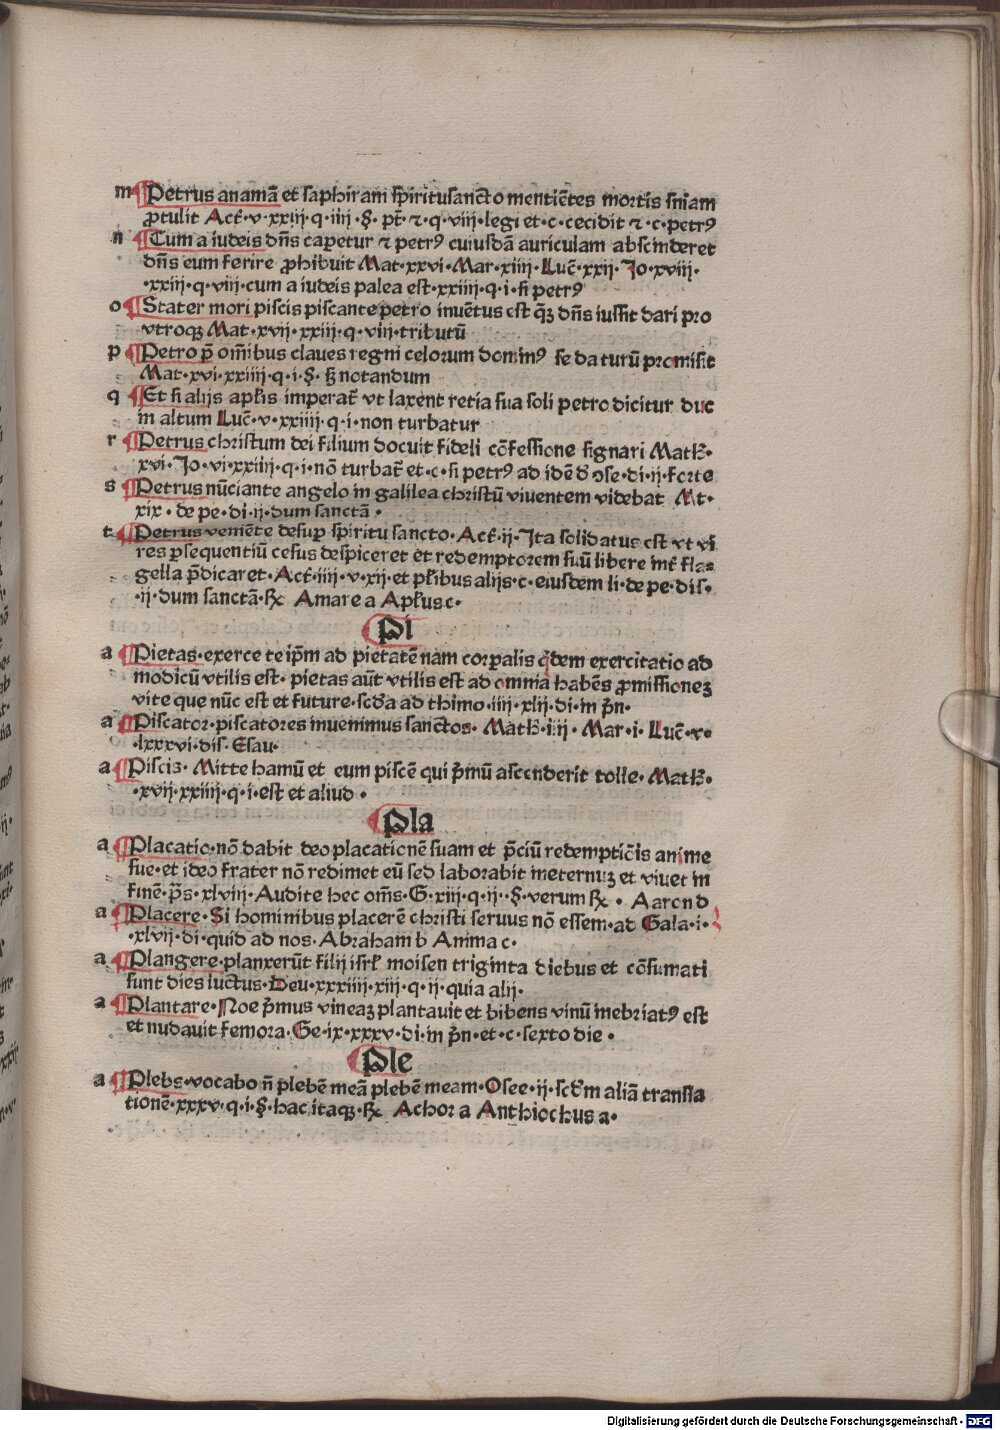 m ¶Petrus anamā et saphiram spiritusancto mentiētes mortis sniam
ꝓtulit Act̄·v·xxiij·q·iiij·§·pt̄·⁊·q·viij·legi et·c·cecidit ⁊·c·petrꝰ
n ¶Cum a iudeis dn̄s caꝑetur ⁊ petrꝰ cuiusdā auriculam abscinderet
dn̄s eum ferire ꝓhibuit Mat·xxvi·Mar·xiiij·Luc̄·xxij·Jo·xviij·
·xxiij·q·viij·cum a iudeis palea est·xxiiij·q·i·si petrꝰ
o ¶Stater mori piscis piscante petro inuētus est qꝫ dn̄s iussit dari pro
vtroqꝫ Mat·xvij·xxiij·q·viij·tributū
p ¶Petro p̄ om̄ibus claues regni celorum dominꝰ se daturū promisit
Mat·xvi·xxiiij·q·i·§·hꝫ notandum
q ¶Et si alijs apl̄is imperat̄ vt laxent retia sua soli petro dicitur duc
in altum Luc̄·v·xxiiij·q·i·non turbatur
r ¶Petrus christum dei filium docuit fideli cōfessione signari Math̄·
xvi·Jo·vi·xxiiij·q·i·nō turbat̄ et·c·si petrꝰ ad idē d̄ ꝯse·di·ij·forte
s ¶Petrus nūciante angelo in galilea christū viuentem videbat Mt·
xix·de pe·di·ij·dum sanctā·
t ¶Petrus veniēte desuꝑ spiritu sancto·Act̄·ij·Ita solidatus est vt vi
res ꝑsequentiū cesus despiceret et redemptorem suū libere int̄ fla⸗
gella p̄dicaret·Act̄·iiij·v·xij·et pl̄ibus alijs·c·eiusdem li·de pe·dis·
·ij·dum sanctā·℞ Amare a Apl̄us c·
¶Pi
a ¶Pietas·exerce te ip̄m ad pietatē nam corꝑalis q̄dem exercitatio ad
modicū vtilis est·pietas aūt vtilis est ad omnia habēs ꝓmissionez
vite que nūc est et future·scd̄a ad thimo·iiij·xlij·di·in p̄n·
a ¶Piscator·piscatores inuenimus sanctos·Math̄·iiij·Mar·i·Luc̄·v·
·lxxxvi·dis·Esau·
a ¶Piscis·Mitte hamū et eum piscē qui p̄mū ascenderit tolle·Math̄·
·xvij·xxiiij·q·i·est et aliud·
¶Pla
a ¶Placatio·nō dabit deo placationē suam et p̄ciū redemptiōis anime
sue·et ideo frater nō redimet eū sed laborabit ineternuꝫ et viuet in
finē·p̄s·xlviij·Audite hec om̄s·G·xiij·q·ij·§·verum ℞·Aaron d
a ¶Placere·Si hominibus placerē christi seruus nō essem·ad Gala·i·
·xlvij·di·quid ad nos·Abraham b Anima c·
a ¶Plangere·planxerūt filij isrl̄ moisen triginta diebus et cōsumati
sunt dies luctus·Deu·xxxiiij·xiij·q·ij·quia alij·
a ¶Plantare·Noe p̄mus vineaꝫ plantauit et bibens vinū inebriatꝰ est
et nudauit femora·Ge·ix·xxxv·di·in p̄n·et·c·sexto die·
¶Ple
a ¶Plebs·vocabo n̄ plebē meā plebē meam·Osee·ij·scd̄m aliā transla
tionē·xxxv·q·i·§·hac itaqꝫ ℞ Achor a Anthiochus a·
Digitalisierung gefördert durch die Deutsche Forschungsgemeinschaft - DFG